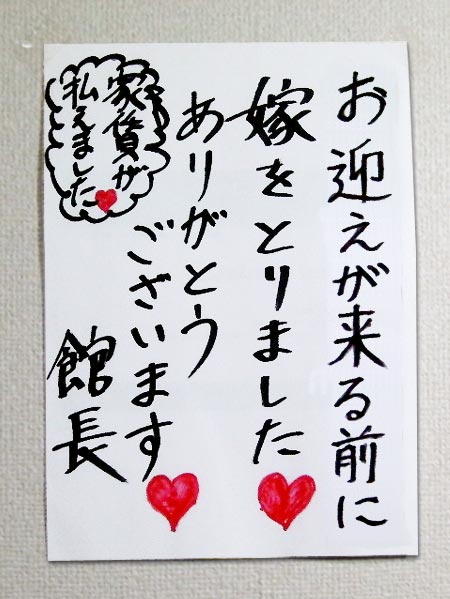 お迎えが来る前に
嫁をとりました
ありがとう
ございます
館長
家賃が
払えました